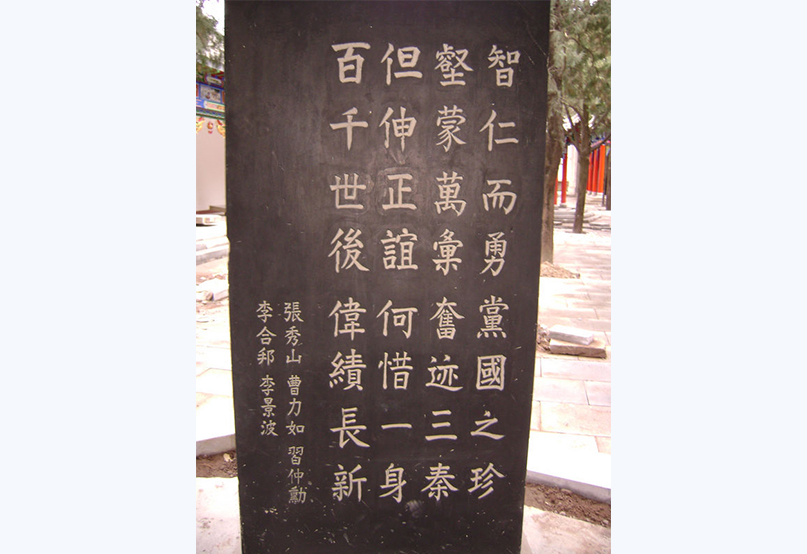 智仁而勇 黨國之珍
壑蒙萬彙 奮迹三秦
但伸正誼 何惜一身
百千世後 偉績長新
張秀山 曹力如 習仲勳
李合邦 李景波